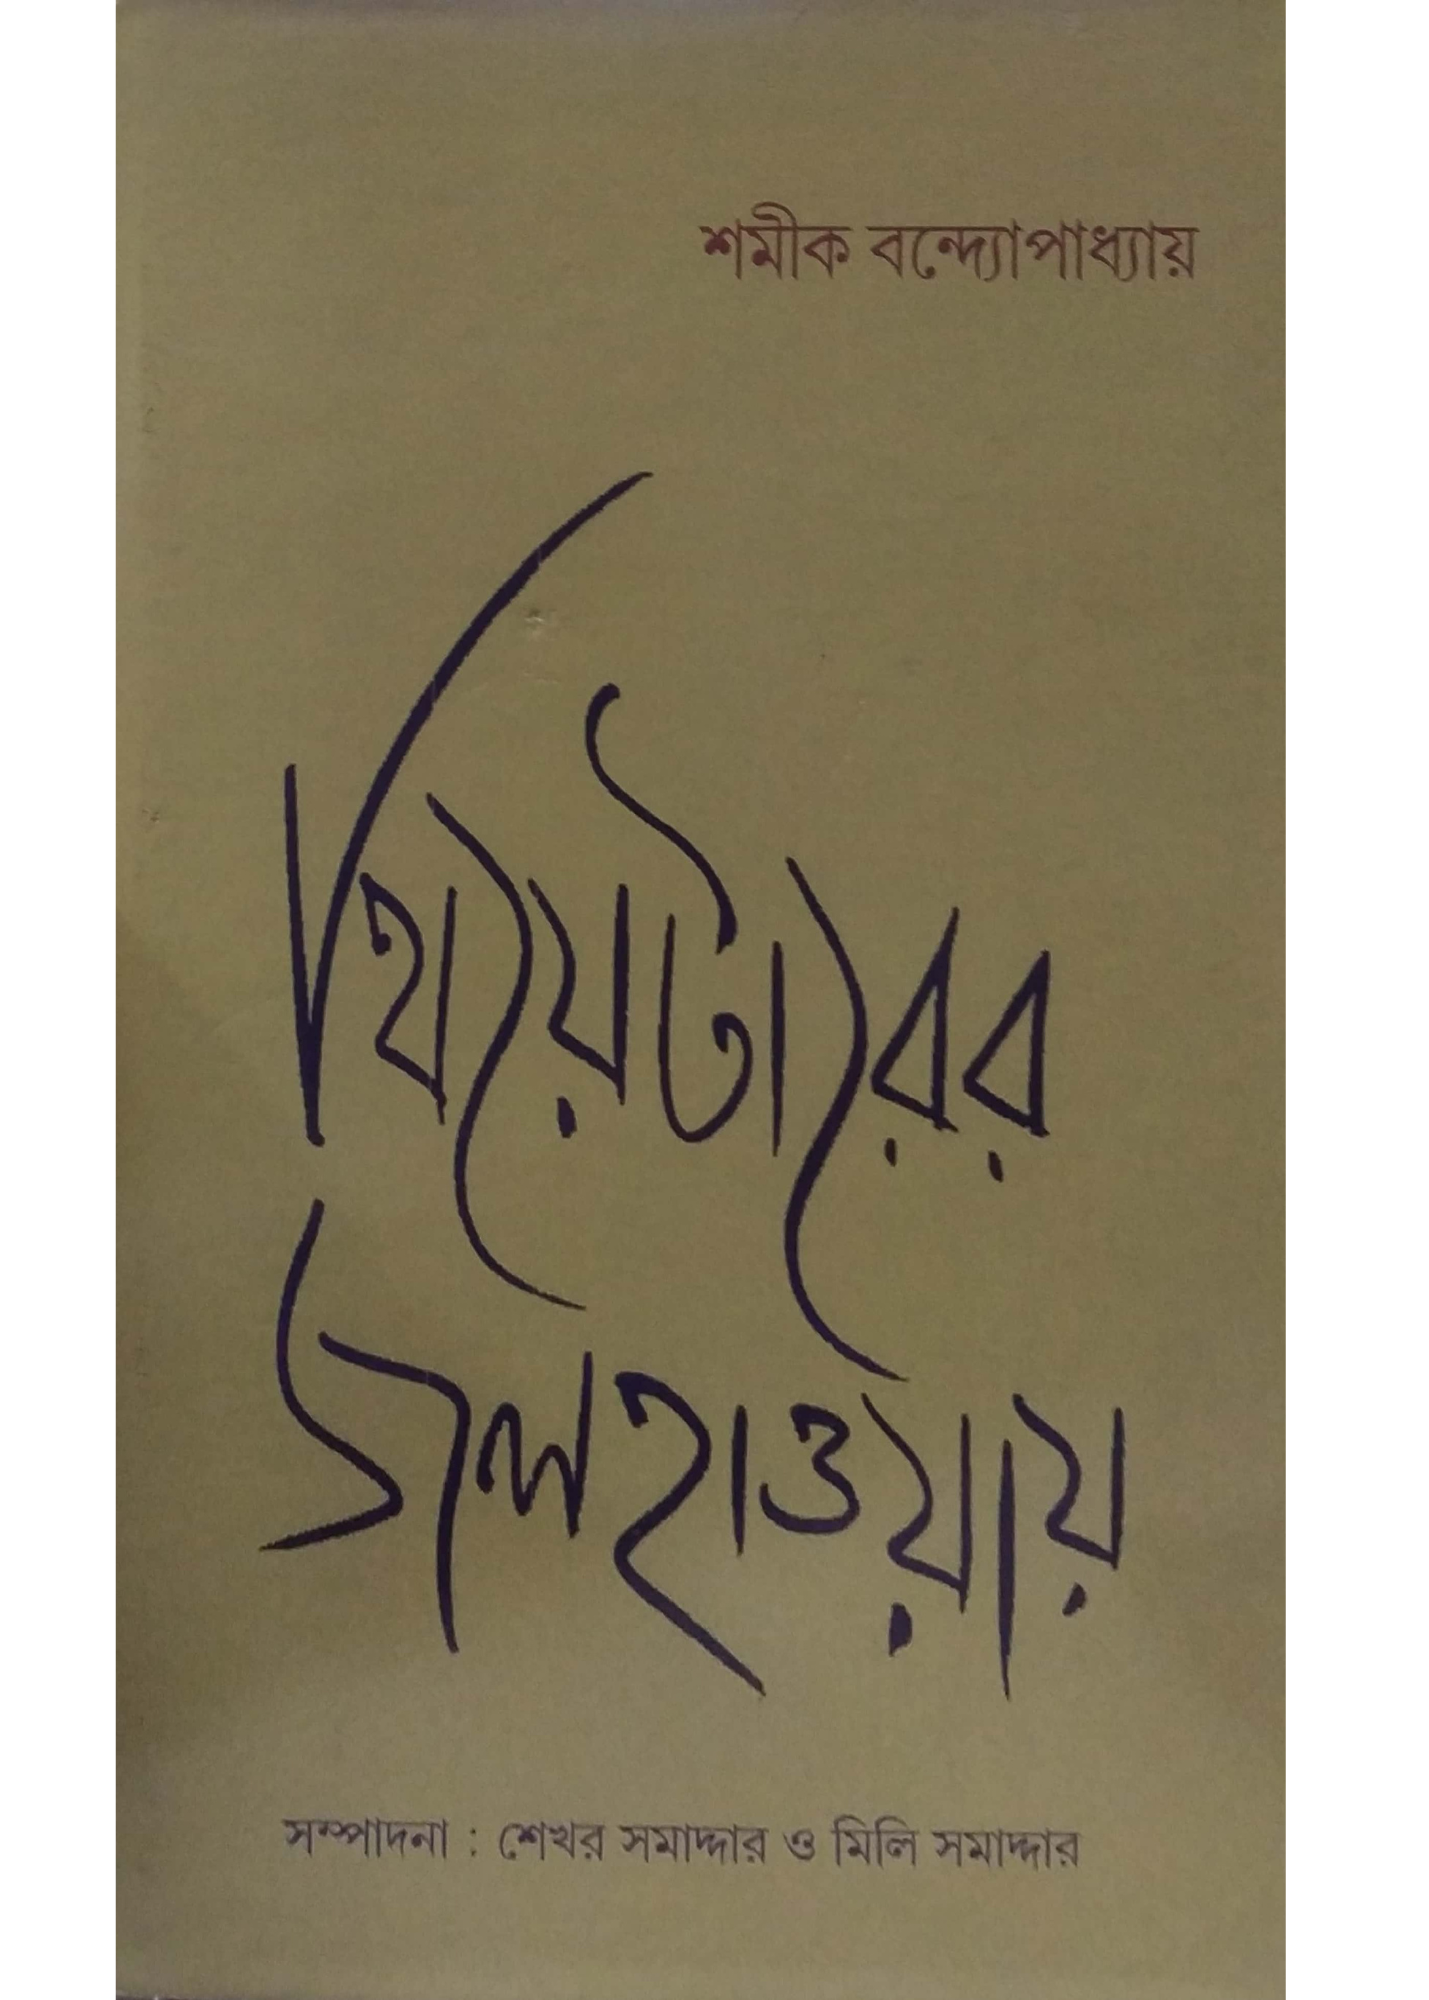 শমীক বন্দ্যোপাধ্যায়
থিয়েটারের
জলহাওয়ায়
সম্পাদনা : শেখর সমাদ্দার ও মিলি সমাদ্দার